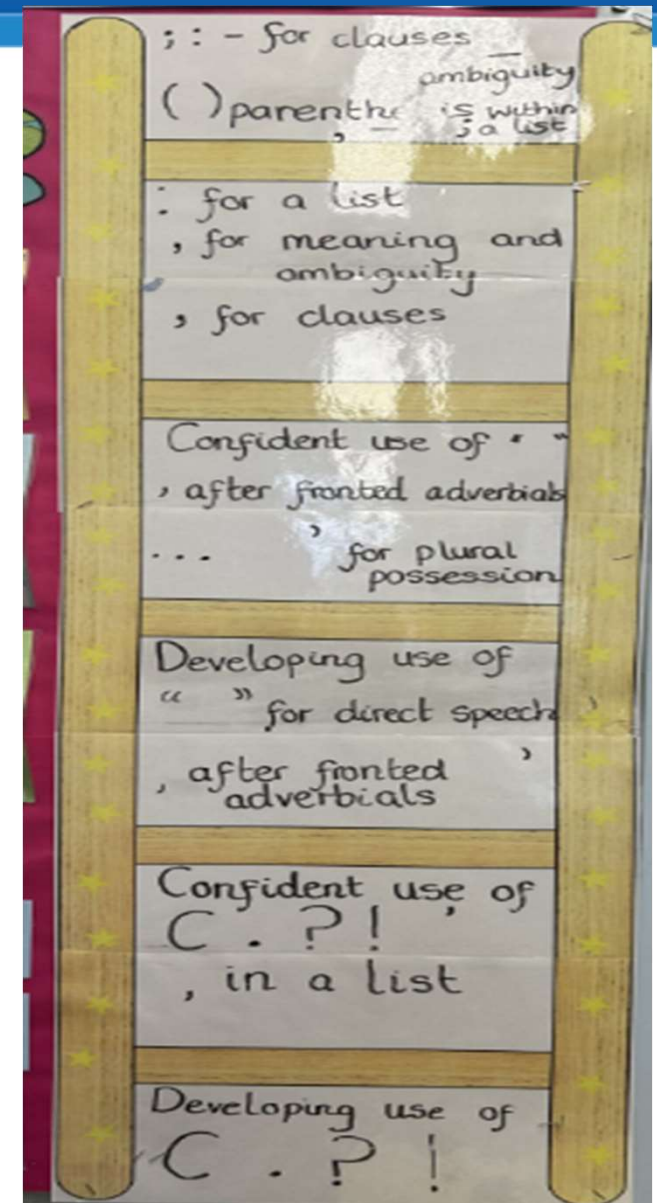 ; : - for clauses
ambiguity
( ) parenthe
, - is within
; a list
: for a list
, for meaning and
ambiguity
, for clauses
Confident use of " "
, after fronted adverbials
... ' for plural
possession
Developing use of
“ ” for direct speech
, after fronted '
adverbials
Confident use of
C . ? ! '
, in a list
Developing use of
C . ? !